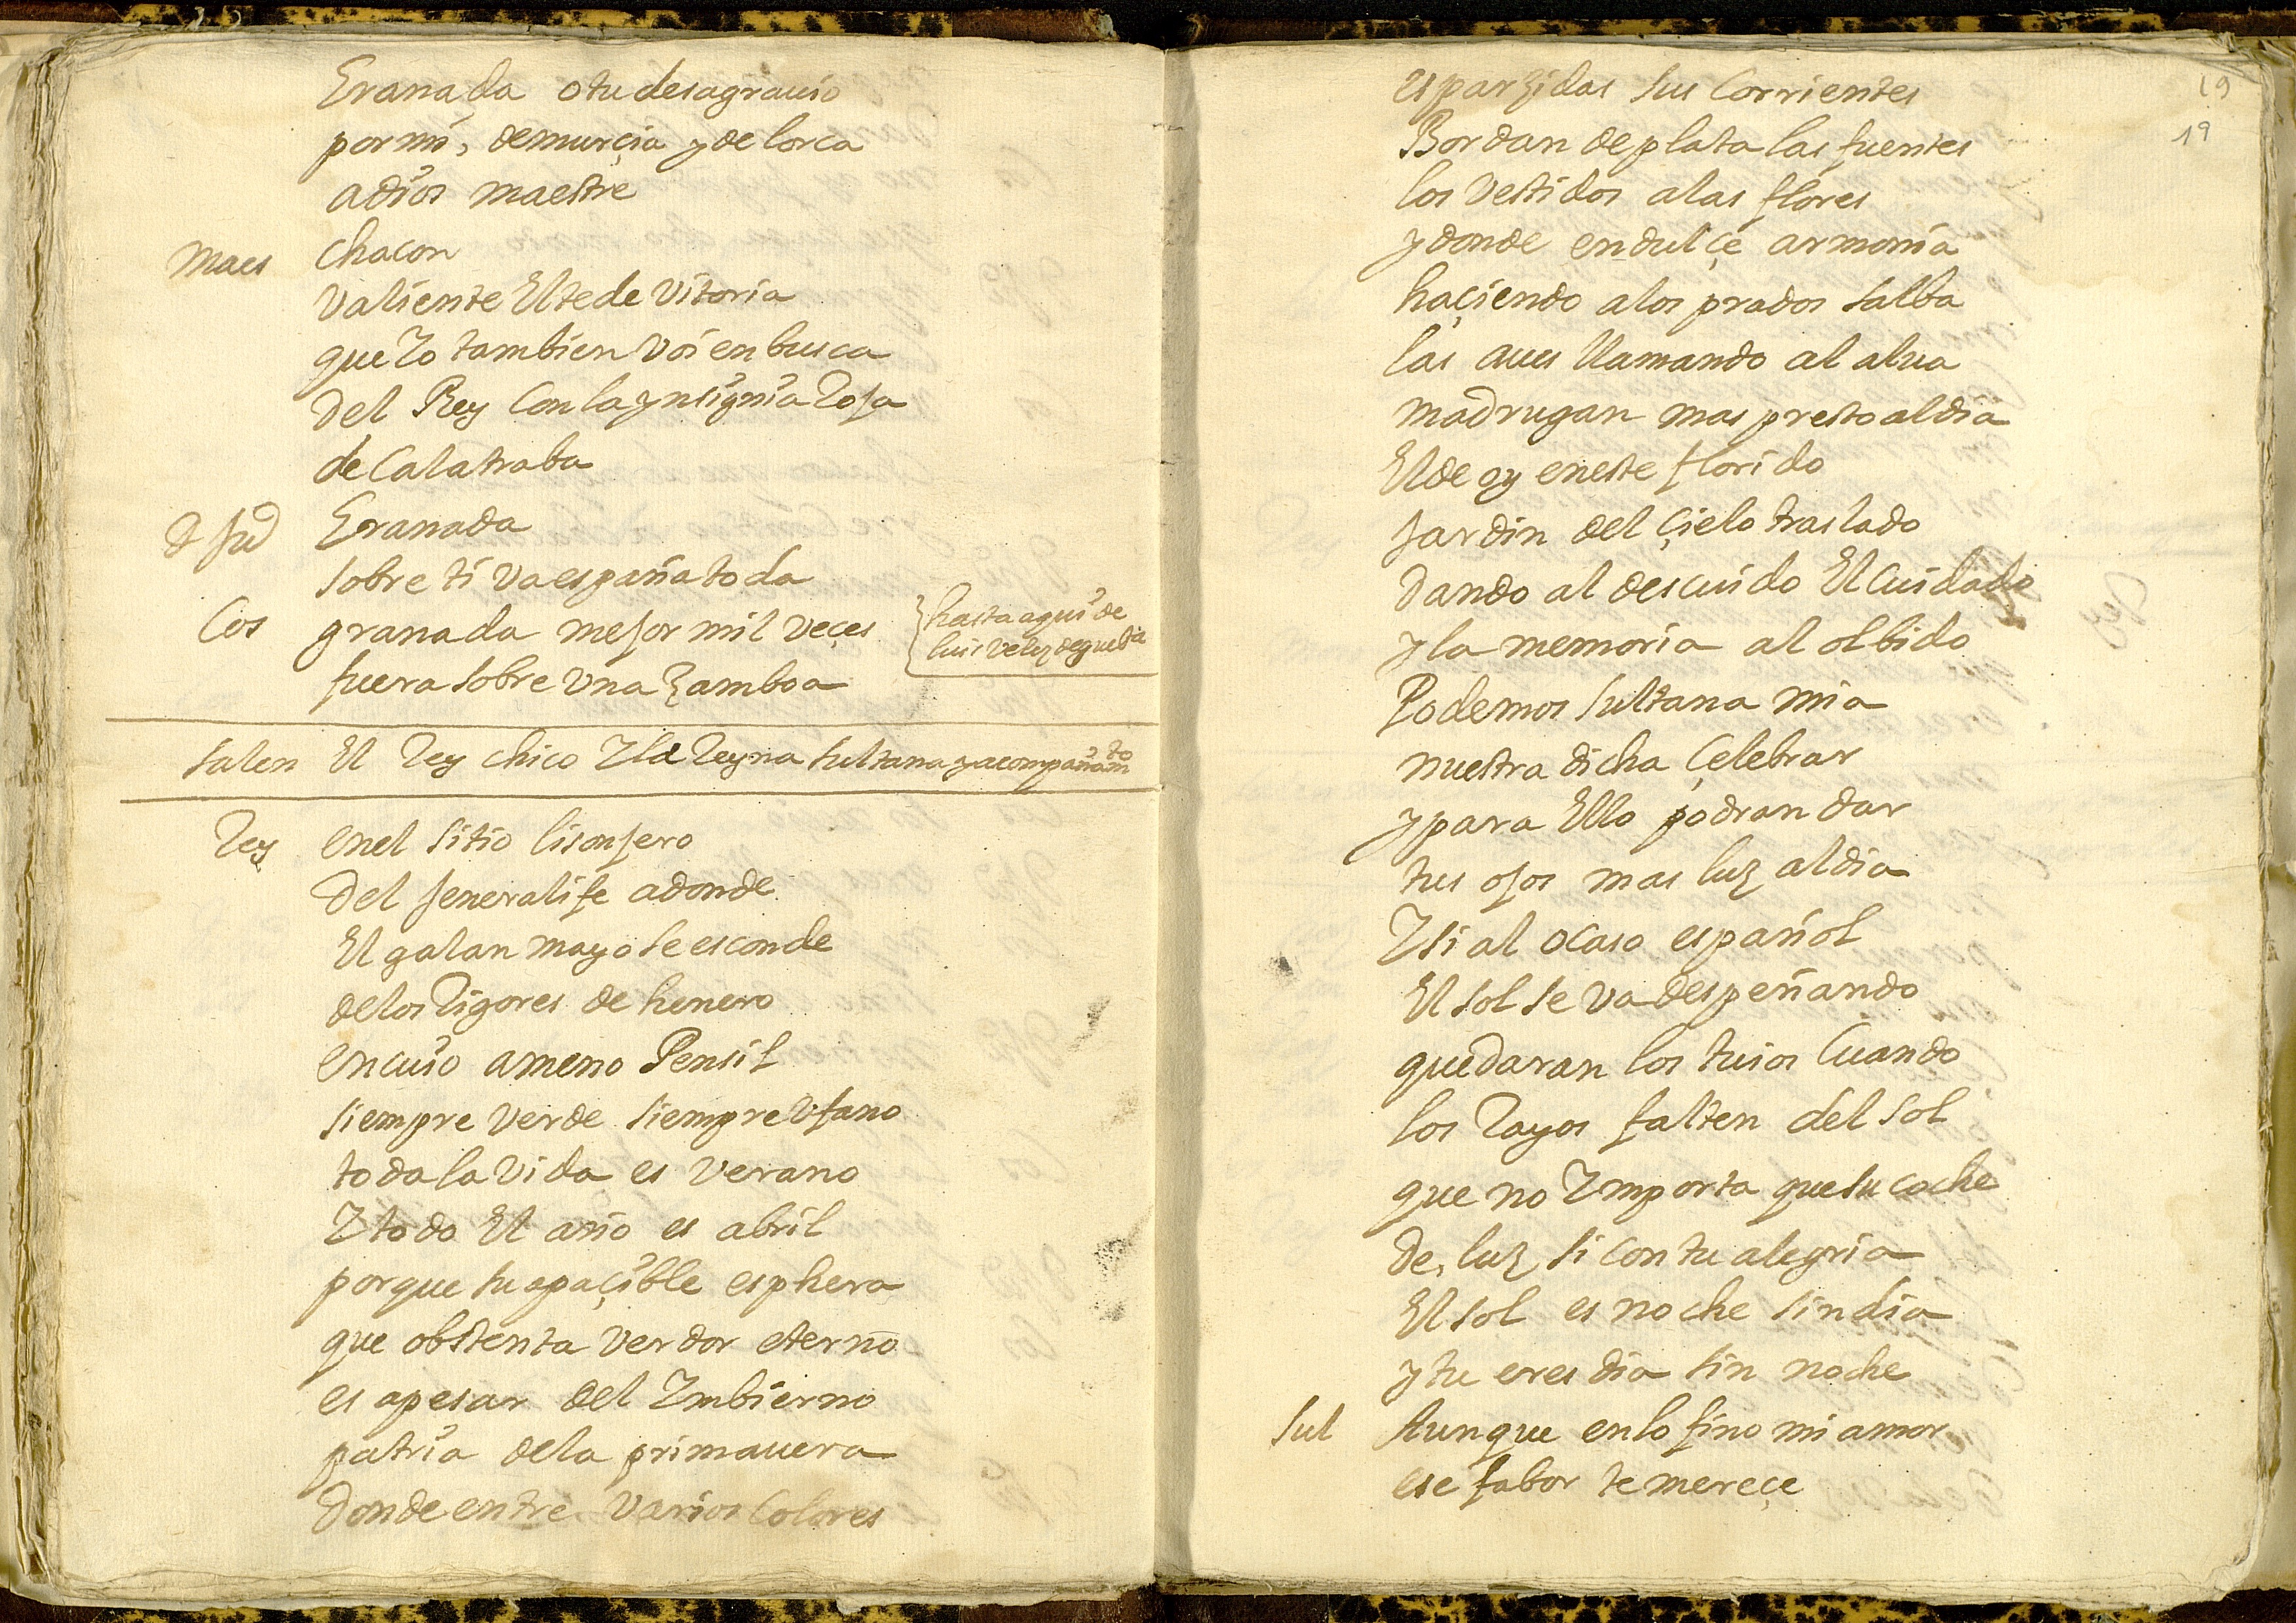 Granada o tu desagrauio
por mi, de murçia y de lorca
adios maestre
Maes chacon
valiente El te de vitoria
que Yo tambien voi en busca
del Rey con la ynsignia Roja
de Calatraba
d Ju Granada
sobre ti va españa toda
Cos granada mejor mil veçes
fuera sobre vna zamboa
hasta aqui de
luis velez de gueba
salen El Rey chico Y la Reyna sultana y acompañamto
Rey en el sitio lisonjero
del jeneralife adonde
El galan mayo se esconde
de los Rigores de henero
en cuio ameno Pensil
siempre verde siempre vfano
toda la vida es verano
Y todo El año es abril
porque tu apaçible esphera
que obstenta verdor eterno
es apesar del Imbierno
patria de la primauera
donde entre varios Colores
19
19
esparzidas sus Corrientes
Bordan de plata las fuentes
los vestidos a las flores
y donde en dulçe armonia
haçiendo a los prados salba
las aues llamando al alua
madrugan mas presto al dia
El de oy en este florido
jardin del çielo traslado
dando al descuido El Cuidado
y la memoria al olbido
Podemos sultana mia
nuestra dicha çelebrar
y para Ello podran dar
tus ojos mas luz al dia
Y si al ocaso español
El sol se va despeñando
quedaran los tuios Cuando
los Rayos falten del sol
que no Importa que su coche
de luz si con tu alegria
El sol es noche sin dia
y tu eres dia sin noche
Sul Aunque en lo fino mi amor
ese fabor te mereçe